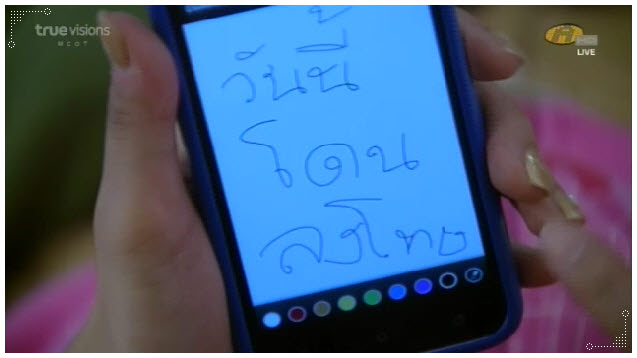 true visions
MCOT
HD
LIVE
วันนี้
โดน
ลงโทษ